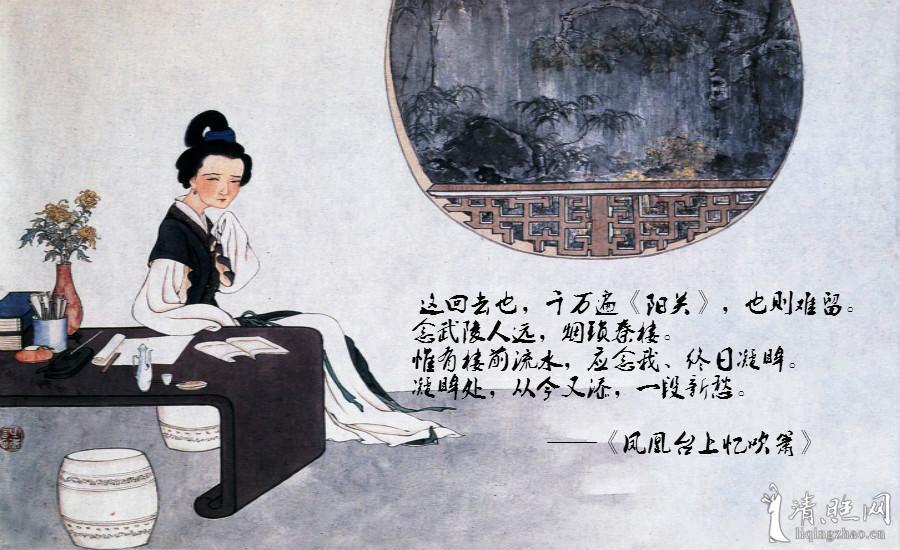 这回去也，千万遍《阳关》，也则难留。
念武陵人远，烟锁秦楼。
惟有楼前流水，应念我、终日凝眸。
凝眸处，从今又添，一段新愁。
——《凤凰台上忆吹箫》
清照网
liqingzhao.cn